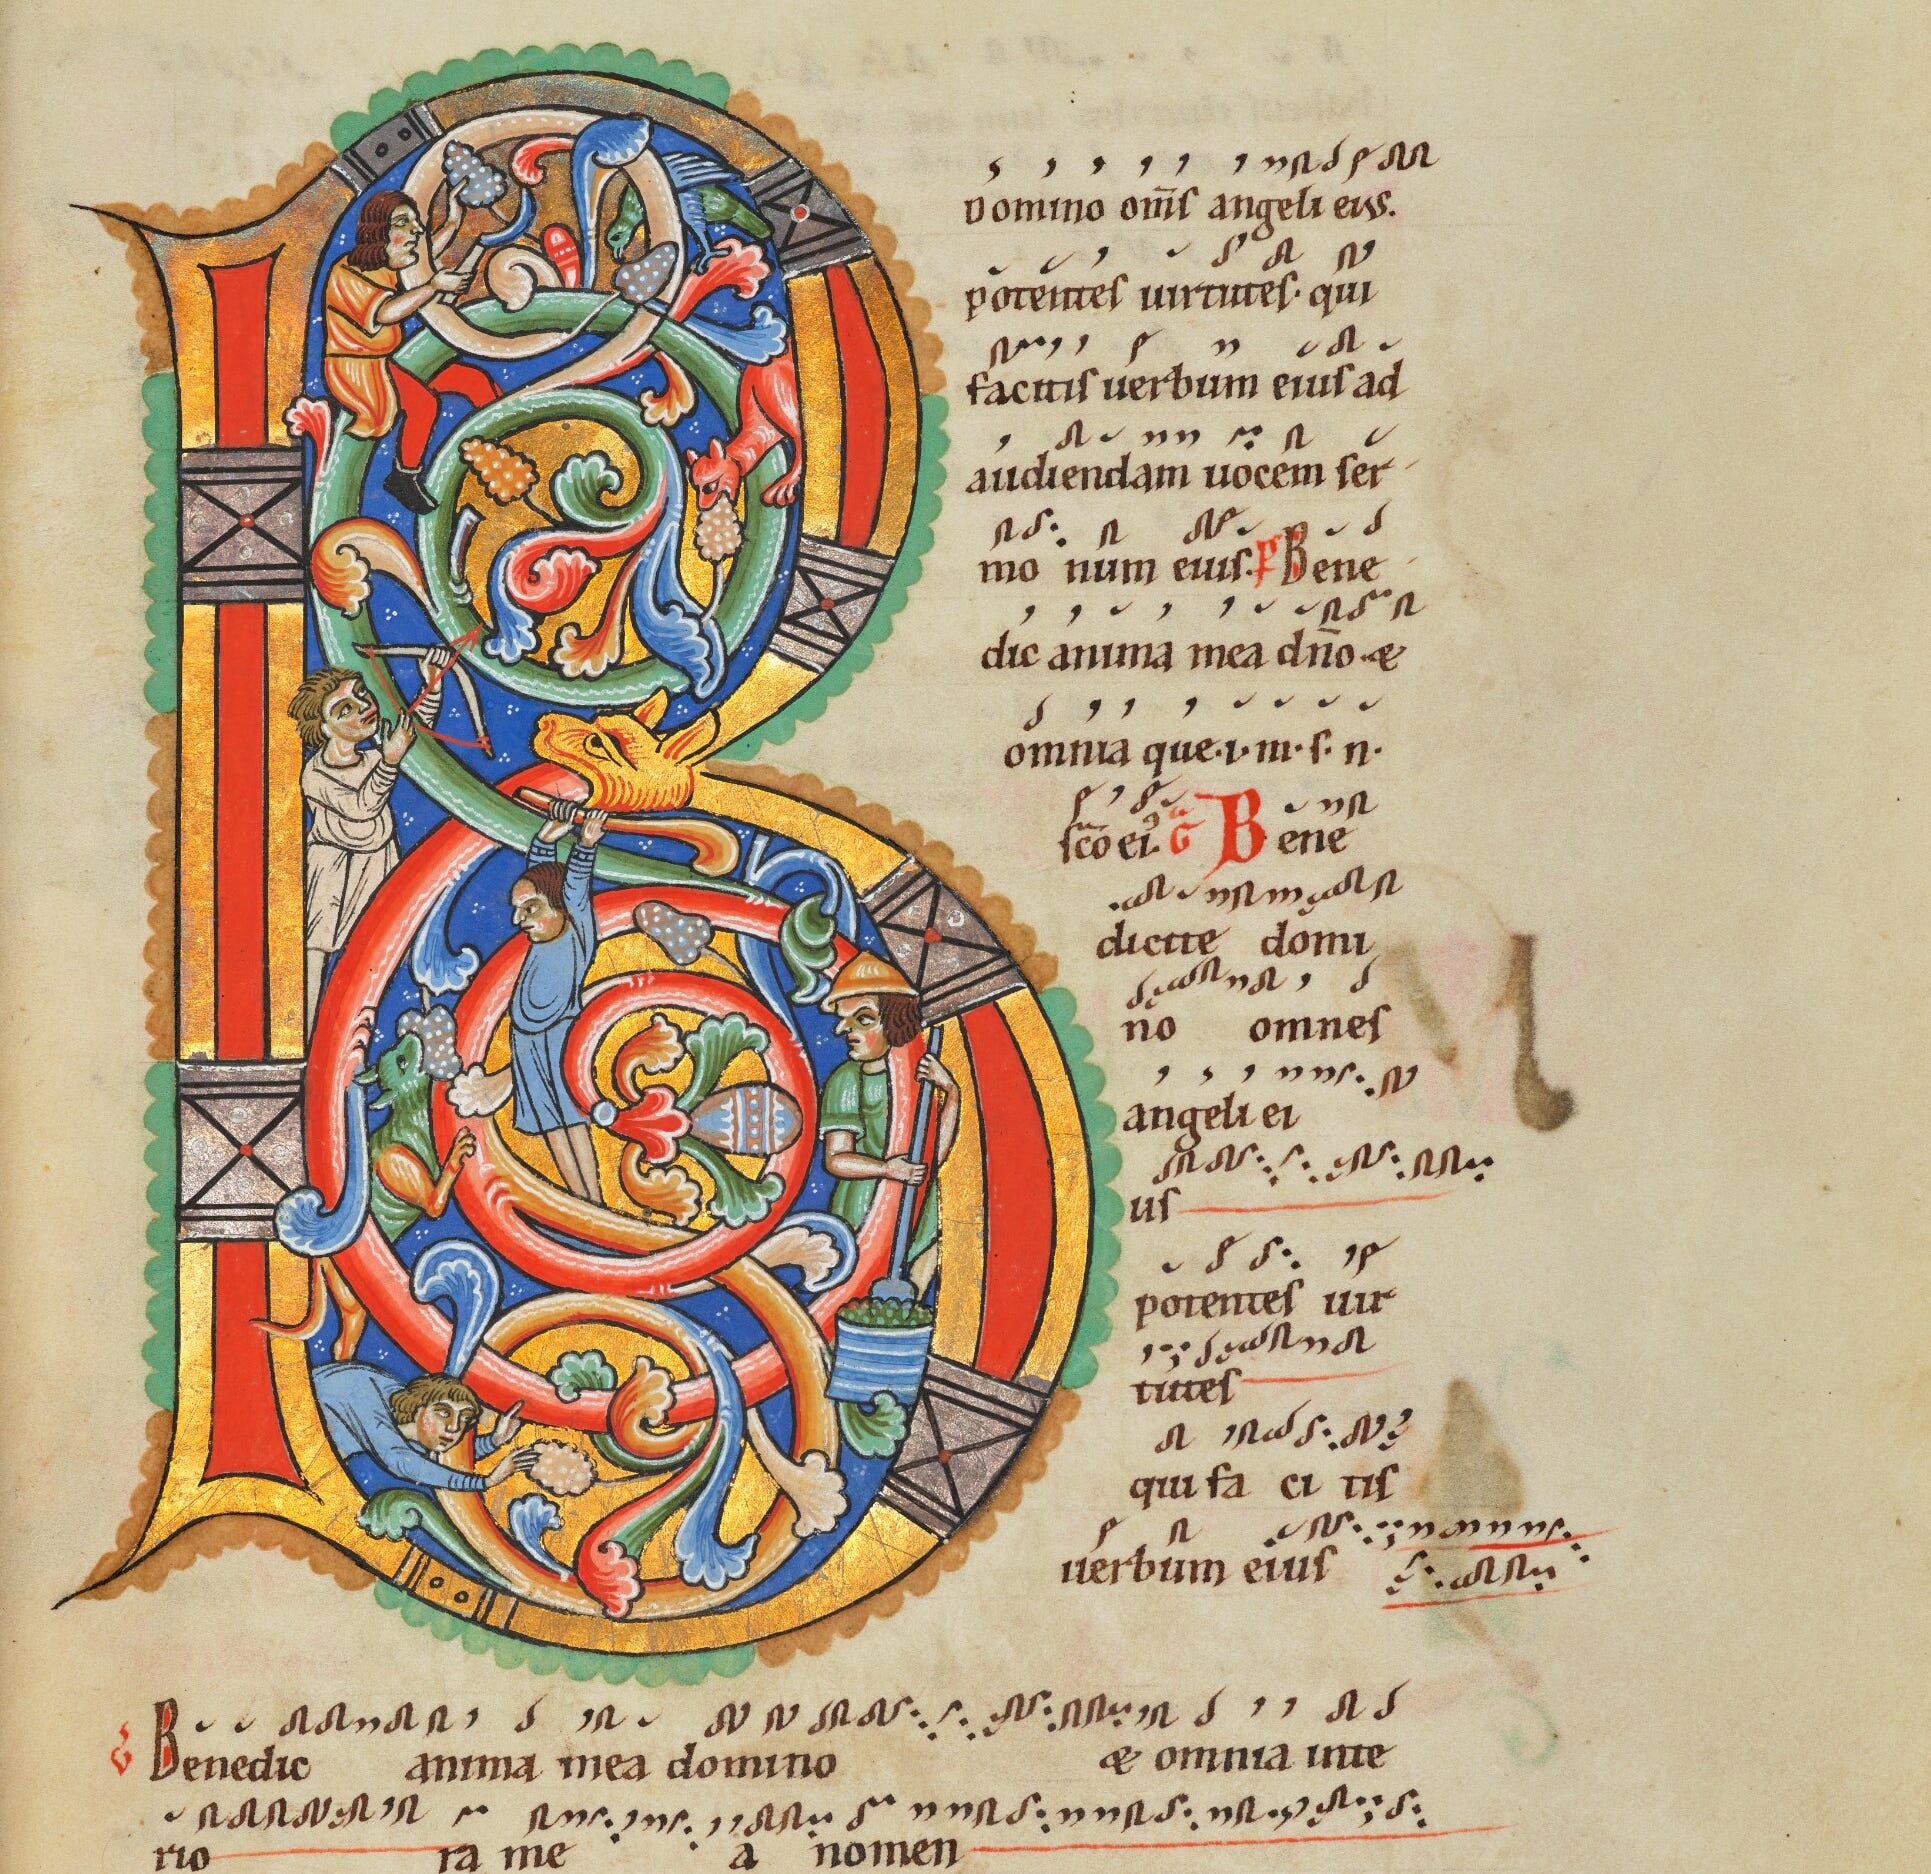 B
Domino om̅s angeli eius.
potentes uirtutes. qui
facitis uerbum eius ad
audiendam uocem ser
mo num eius. P̅ Bene
dic anima mea dn̅o. &
omnia que.i.m.s.n.
sc̅o ei9. G̅ Bene
dicite domi
no omnes
angeli ei
us
potentes uir
tutes
qui fa ci tis
uerbum eius
Benedic anima mea domino & omnia inte
rio ra me a nomen